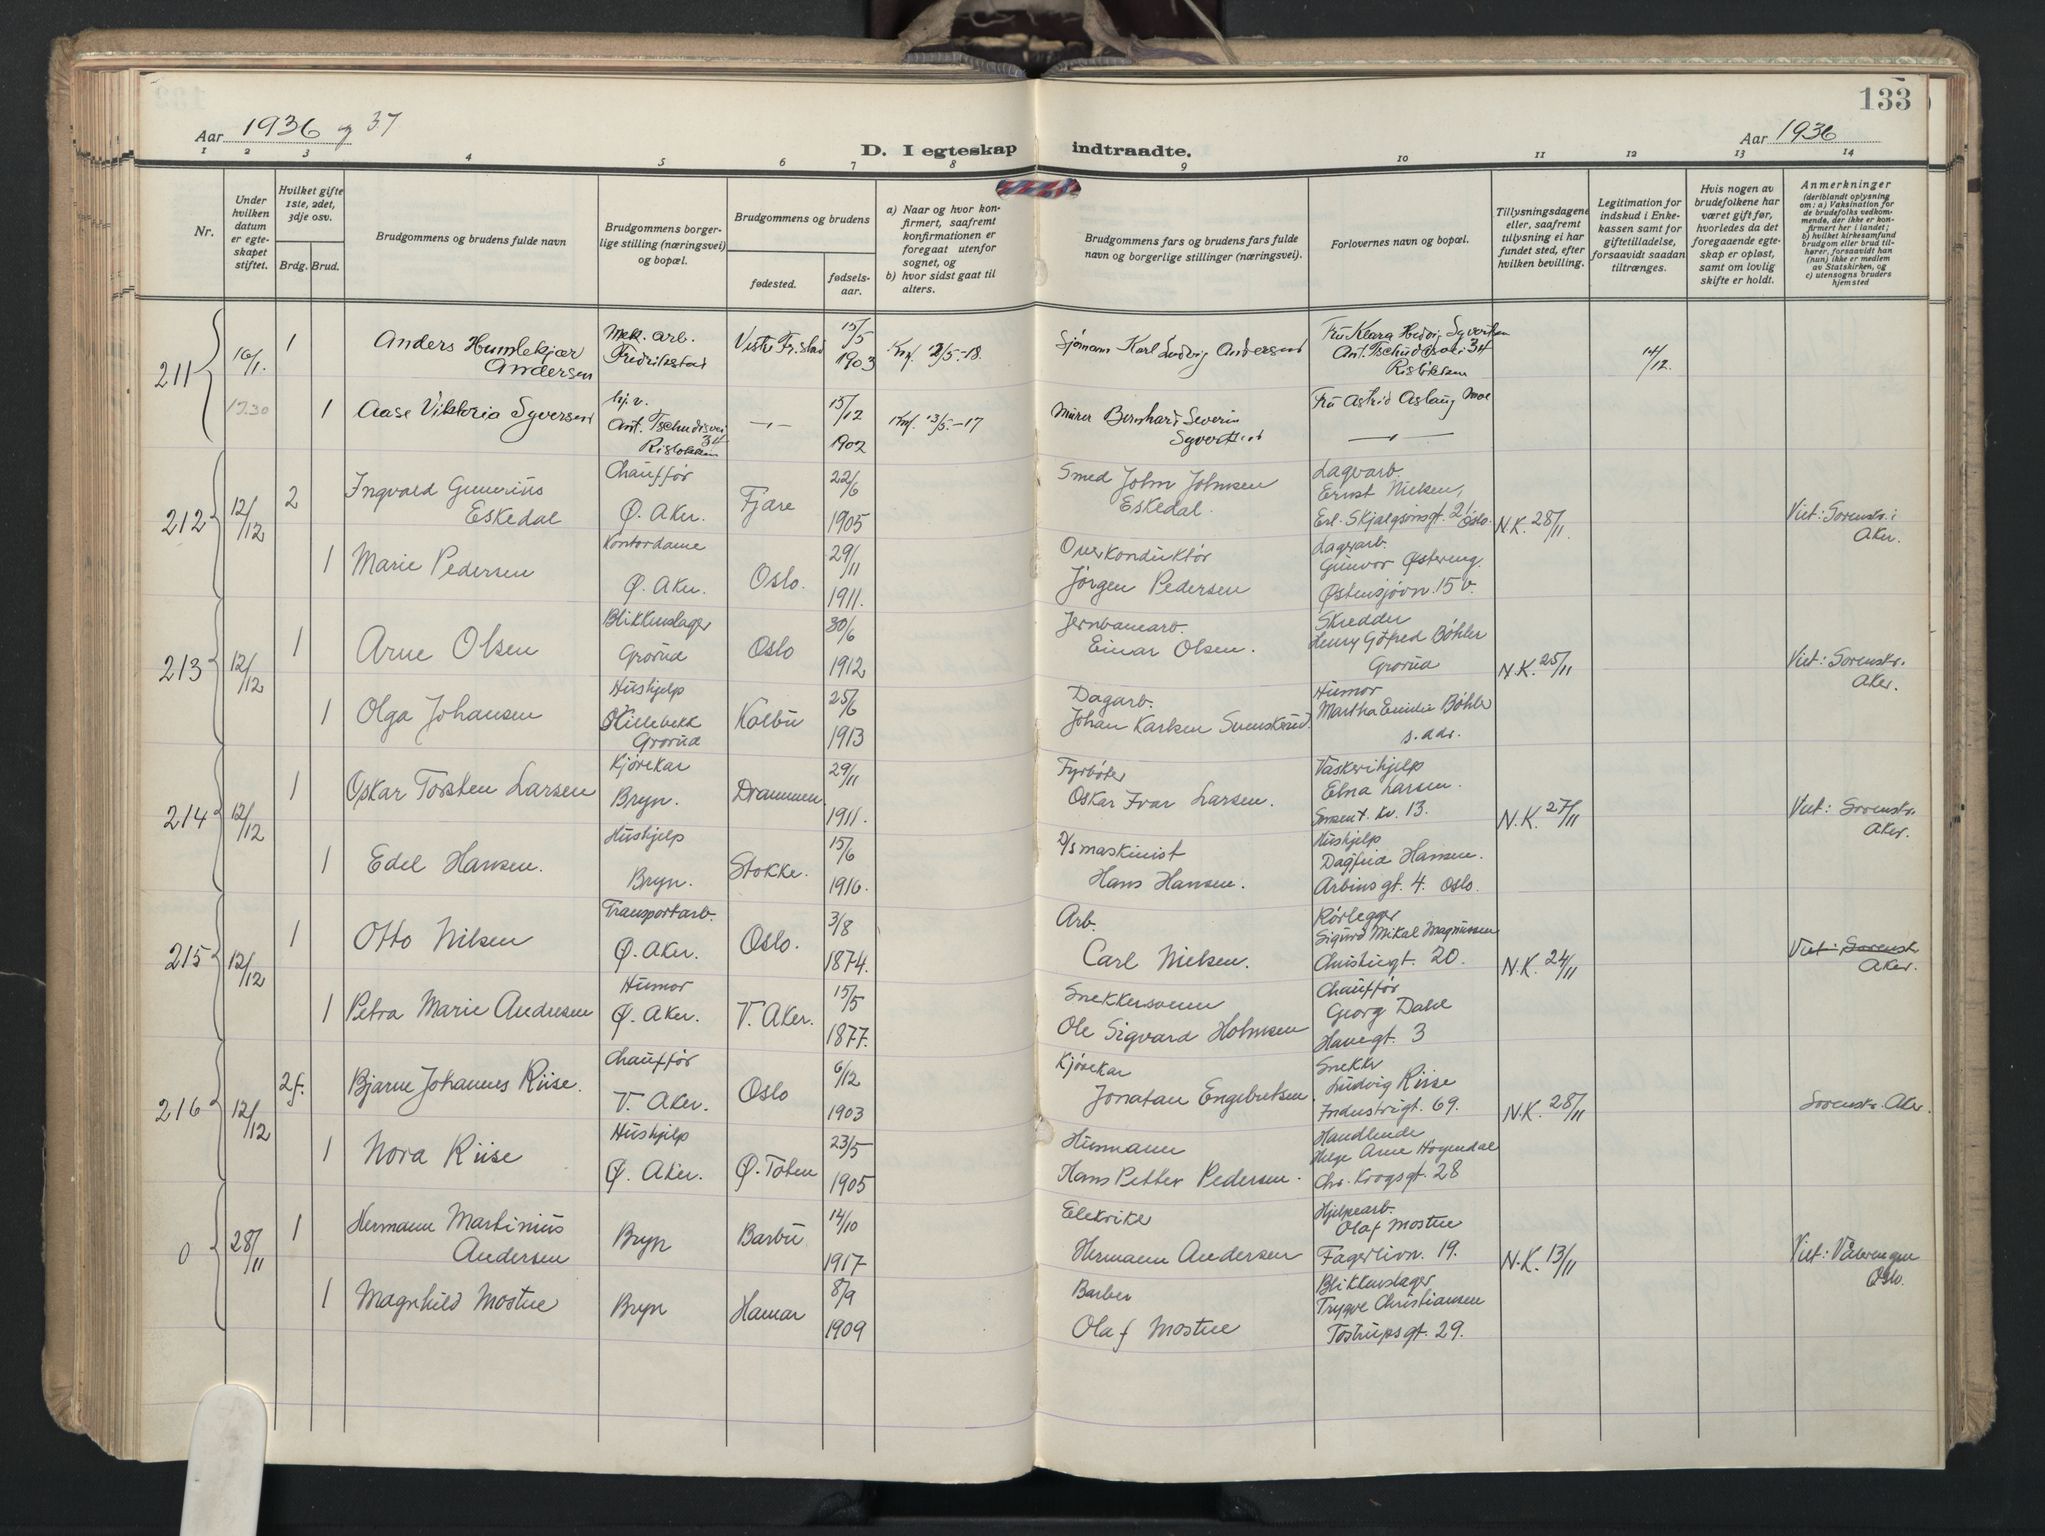 133
Aar 1936 og 37
Aar 1936
D. I egteskap indtraadte.
1 2 3 4 5 6 7 8 9 10 11 12 13 14
Nr.
Under hvilken datum er egteskapet stiftet.
Hvilket gifte 1ste, 2det, 3dje osv.
Brdg. Brud.
Brudgommens og brudens fulde navn
Brudgommens borgerlige stilling (næringsvei) og bopæl.
Brudgommens og brudens
fødested.
fødselsaar.
a) Naar og hvor konfirmert, saafremt konfirmationen er foregaat utenfor sognet, og
b) hvor sidst gaat til alters.
Brudgommens fars og brudens fars fulde navn og borgerlige stillinger (næringsvei).
Forlovernes navn og bopæl.
Tillysningsdagene eller, saafremt tillysning ei har fundet sted, efter hvilken bevilling.
Legitimation for indskud i Enkekassen samt for giftetilladelse, forsaavidt saadan tiltrænges.
Hvis nogen av brudefolkene har været gift før, hvorledes da det foregaaende egteskap er opløst, samt om lovlig skifte er holdt.
Anmerkninger
(deriblandt oplysning om: a) Vaksination for de brudefolks vedkommende, der ikke er konfirmert her i landet; b) hvilket kirkesamfund brudgom eller brud tilhører, forsaavidt han (hun) ikke er medlem av Statskirken, og c) utensogns bruders hjemsted
211 16/1. 1 Anders Humlekjær Andersen Mek. arb. Fredrikstad Vestre Fr.stad 15/5 1903 Konf. 12/5.-18. Sjømann Karl Ludvig Andersen Fru Klara Hedvig Syvertsen Ant. Tschudisvei 34 Risløkken 14/12.
1730 1 Aase Viktoria Syversen hj.v. Ant. Tschudisvei 34 Risløkken —„— 15/12 1902 Konf. 13/5.-17 Murer Bernhard Severin Syvertsen Fru Astrid Aslaug Moe —„—
212 12/12 2 Ingvald Gunerius Eskedal Chauffør Ø. Aker. Fjære 22/6 1905 Smed John Johnsen Eskedal. Lagerarb. Ernst Nielsen, Erl. Skjalgsønsgt. 21 Oslo. N.K. 28/11. Viet: Sorenskr. i Aker.
1 Marie Pedersen Kontordame Ø. Aker. Oslo. 29/11 1911. Overkonduktør Jørgen Pedersen Lagerarb. Gunvor Østereng. Østensjøvn. 15 v.
213 12/12 1 Arne Olsen Blikkenslager Grorud Oslo 30/6 1912 Jernbanearb. Einar Olsen. Skredder Henry Gotfred Bøhler Grorud N.K. 25/11 Viet: Sorenskr. Aker.
1 Olga Johansen Hushjelp Lillebekk Grorud Kolbu 25/6 1913 Dagarb. Johan Karlsen Svenskerud. Husmor Martha Emilie Bøhler s. adr.
214 12/12 1 Oskar Torsten Larsen Kjørekar Bryn. Drammen 29/11 1911. Fyrbøter Oskar Ivar Larsen. Vaskerihjelp Elna Larsen. kv. 13. N.K. 27/11 Viet: Sorenskr. Aker.
1 Edel Hansen. Hushjelp Bryn. Stokke. 15/6 1916. D/s maskinist Hans Hansen. Hushjelp Dagfrid Hansen. Arbinsgt. 4. Oslo.
215 12/12 1 Otto Nilsen Transportarb. Ø. Aker. Oslo. 3/8 1874. Arb. Carl Nielsen. Rørlegger Sigurd Mikal Magnussen Christiegt. 20. N.K. 24/11 Viet: Sorenskr. Aker.
1 Petra Marie Andersen Husmor Ø. Aker. V. Aker. 15/5 1877. Snekkersvenn Ole Sigvard Holmsen Chauffør Georg Dahl Havegt. 3
216 12/12 2 f. Bjarne Johannes Riise. Chauffør V. Aker. Oslo 6/12 1903 Kjørekar Jonatan Engebretsen. Snekker Ludvig Riise Industrigt. 69. N.K. 28/11 Sorenskr. Aker.
1 Nora Riise Hushjelp Ø. Aker. Ø. Toten 23/5 1905 Husmann Hans Petter Pedersen. Handlende Helge Arne Chr. Krogsgt. 28
0 28/11 1 Hermann Martinius Andersen Bryn Barbu 14/10 1917 Elektriker Hermann Andersen Hjelpearb. Olaf Mostue Fagerlivn. 19. N.K. 13/11 Viet: Vålerengen Oslo.
1 Magnhild Mostue Bryn Hamar 8/9 1909 Barber Olaf Mostue Blikkenslager Trygve Christiansen Tostrupsgt. 29.